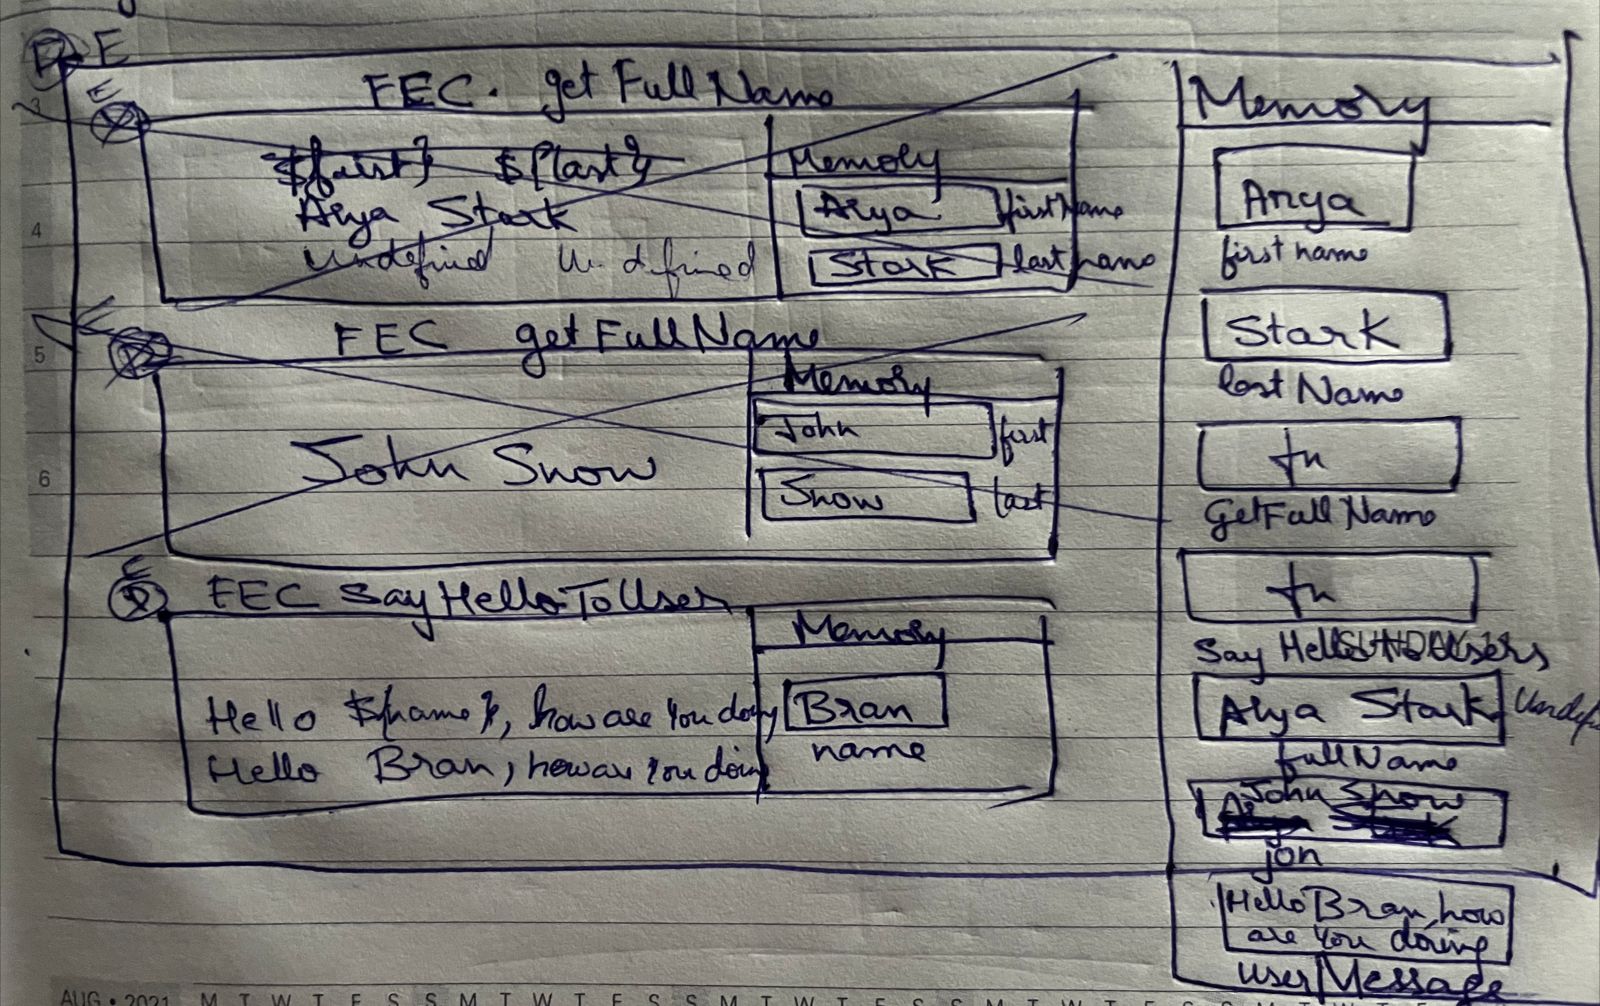 E
E
FEC. getFullName
${first} ${last}
Arya Stark
Undefined Undefined
Memory
Arya firstName
Stark lastname
FEC getFullName
John Snow
Memory
John first
Snow last
E
FEC SayHelloToUser
Hello ${name}, how are you doing
Hello Bran, how are you doing
Memory
Bran
name
Memory
Arya
first name
Stark
lastName
fn
GetFullName
fn
Arya Stark
fullName
John Snow
jon
Hello Bran, how
are you doing
userMessage
3
4
5
6
AUG • 2021 M T W T F S S M T W T F S S M T W T F S S M T W T F